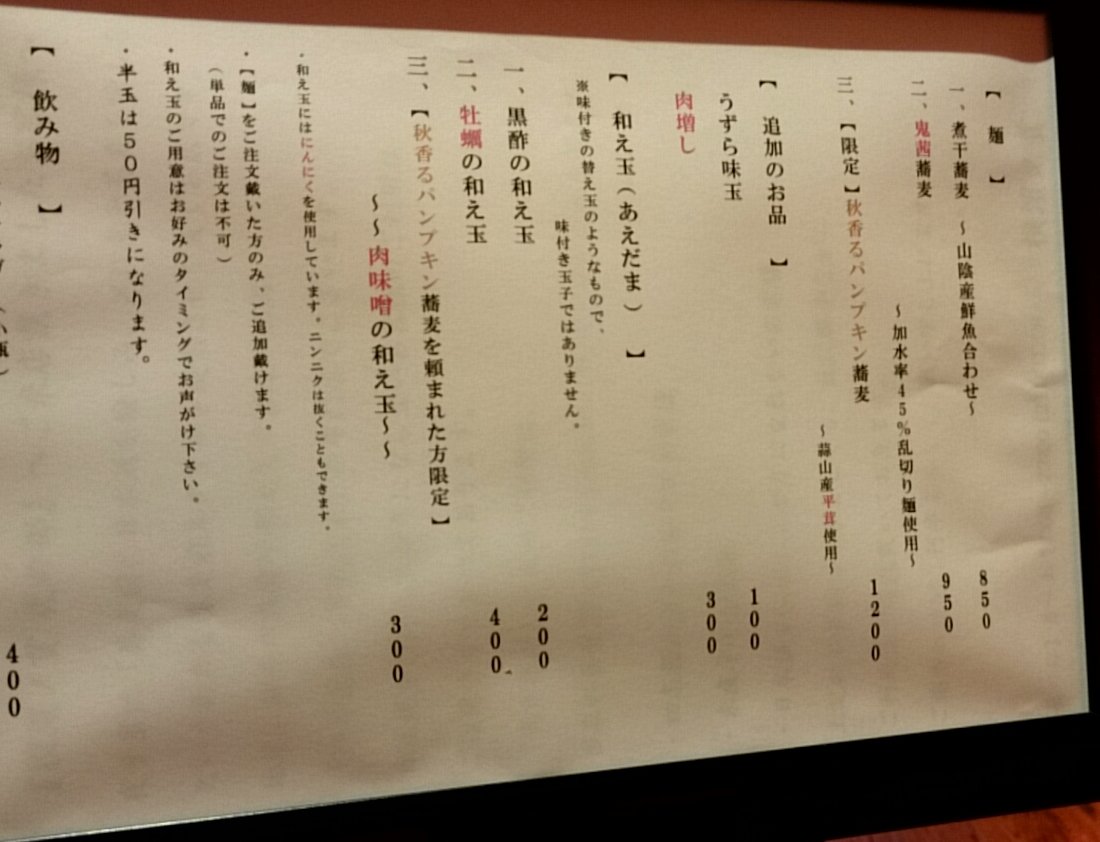 【 麺 】
一、煮干蕎麦 ～山陰産鮮魚合わせ～ 850
二、鬼茜蕎麦 950
～加水率45%乱切り麺使用～
三、【限定】秋香るパンプキン蕎麦 1200
～蒜山産平茸使用～
【 追加のお品 】
うずら味玉 100
肉増し 300
【 和え玉（あえだま） 】
※味付きの替え玉のようなもので、
味付き玉子ではありません。
一、黒酢の和え玉 200
二、牡蠣の和え玉 400
三、【秋香るパンプキン蕎麦を頼まれた方限定】
～～肉味噌の和え玉～～ 300
・和え玉にはにんにくを使用しています。ニンニクは抜くこともできます。
・【麺】をご注文戴いた方のみ、ご追加戴けます。
（単品でのご注文は不可）
・和え玉のご用意はお好みのタイミングでお声がけ下さい。
・半玉は50円引きになります。
【 飲み物 】
400